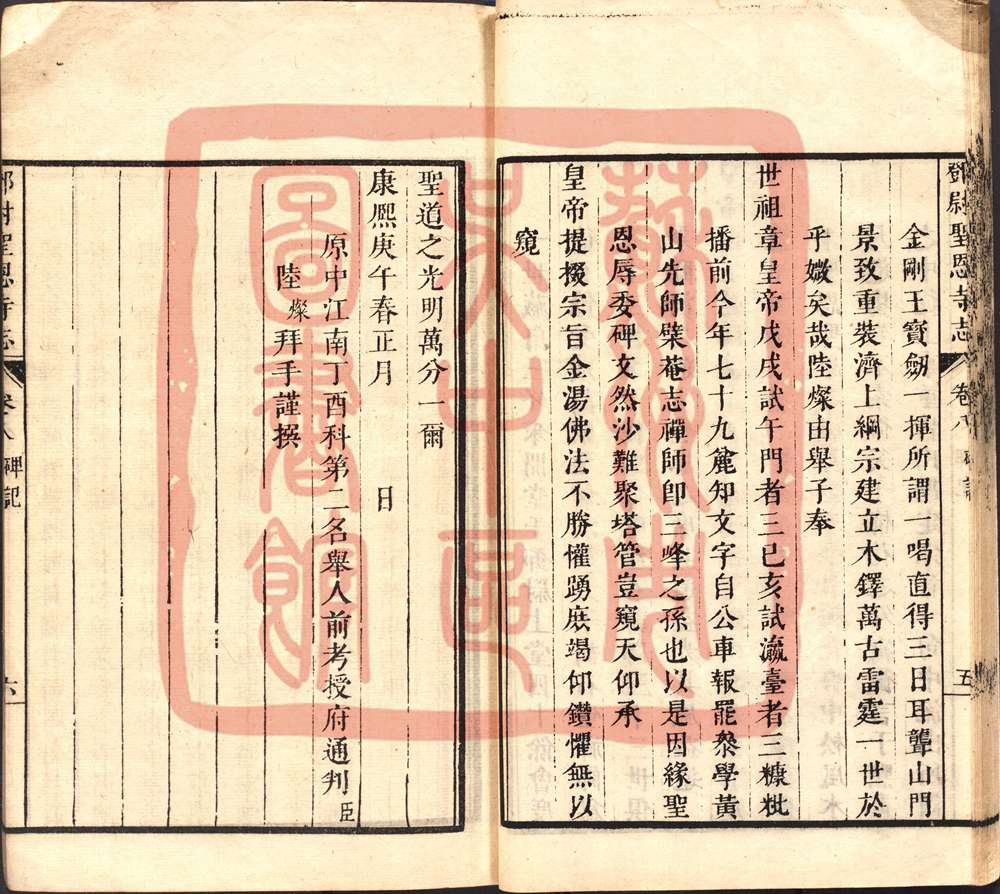 鄧尉聖恩寺志 卷八 碑記 五
金剛王寶劒一揮所謂一喝直得三日耳聾山門
景致重裝濟上綱宗建立木鐸萬古雷霆一世於
乎媺矣哉陸燦由舉子奉
世祖章皇帝戊戌試午門者三已亥試瀛臺者三糠粃
播前今年七十九麄知文字自公車報罷叅學黃
山先師檗菴志禪師卽三峰之孫也以是因緣聖
恩辱委碑文然沙難聚塔管豈窺天仰承
皇帝提掇宗旨金湯佛法不勝懽踴庶竭仰鑽懼無以
窺
聖道之光明萬分一爾
康熈庚午春正月 日
原中江南丁酉科第二名舉人前考授府通判臣
陸燦拜手謹撰
鄧尉聖恩寺志 卷八 碑記 六
蘇州市
文士画
圖書館